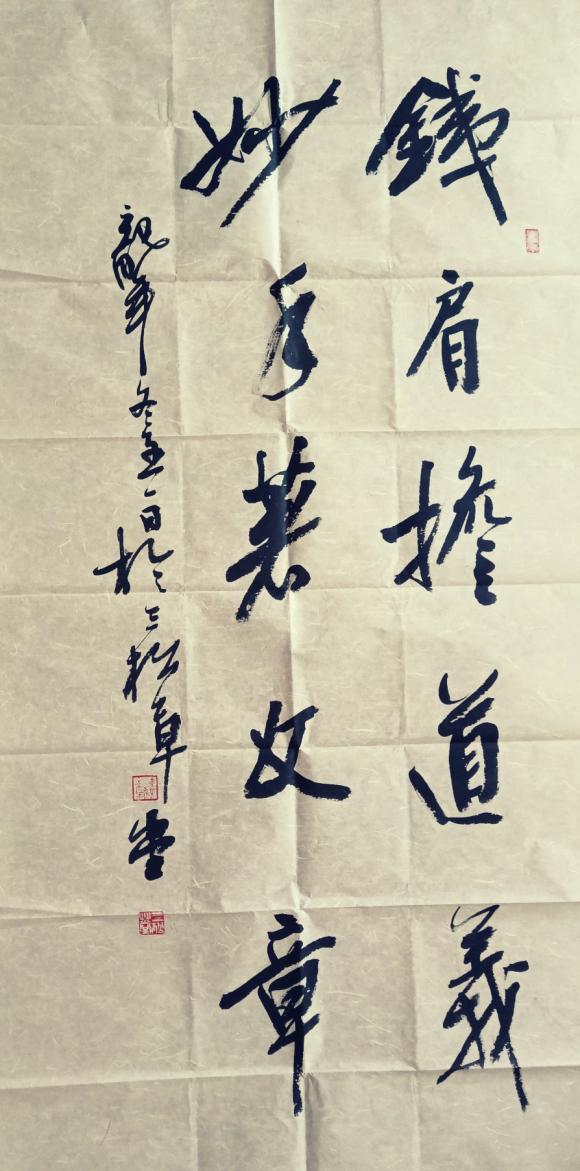 鐵肩擔道義
妙手著文章
龍年冬至一日於三松草堂